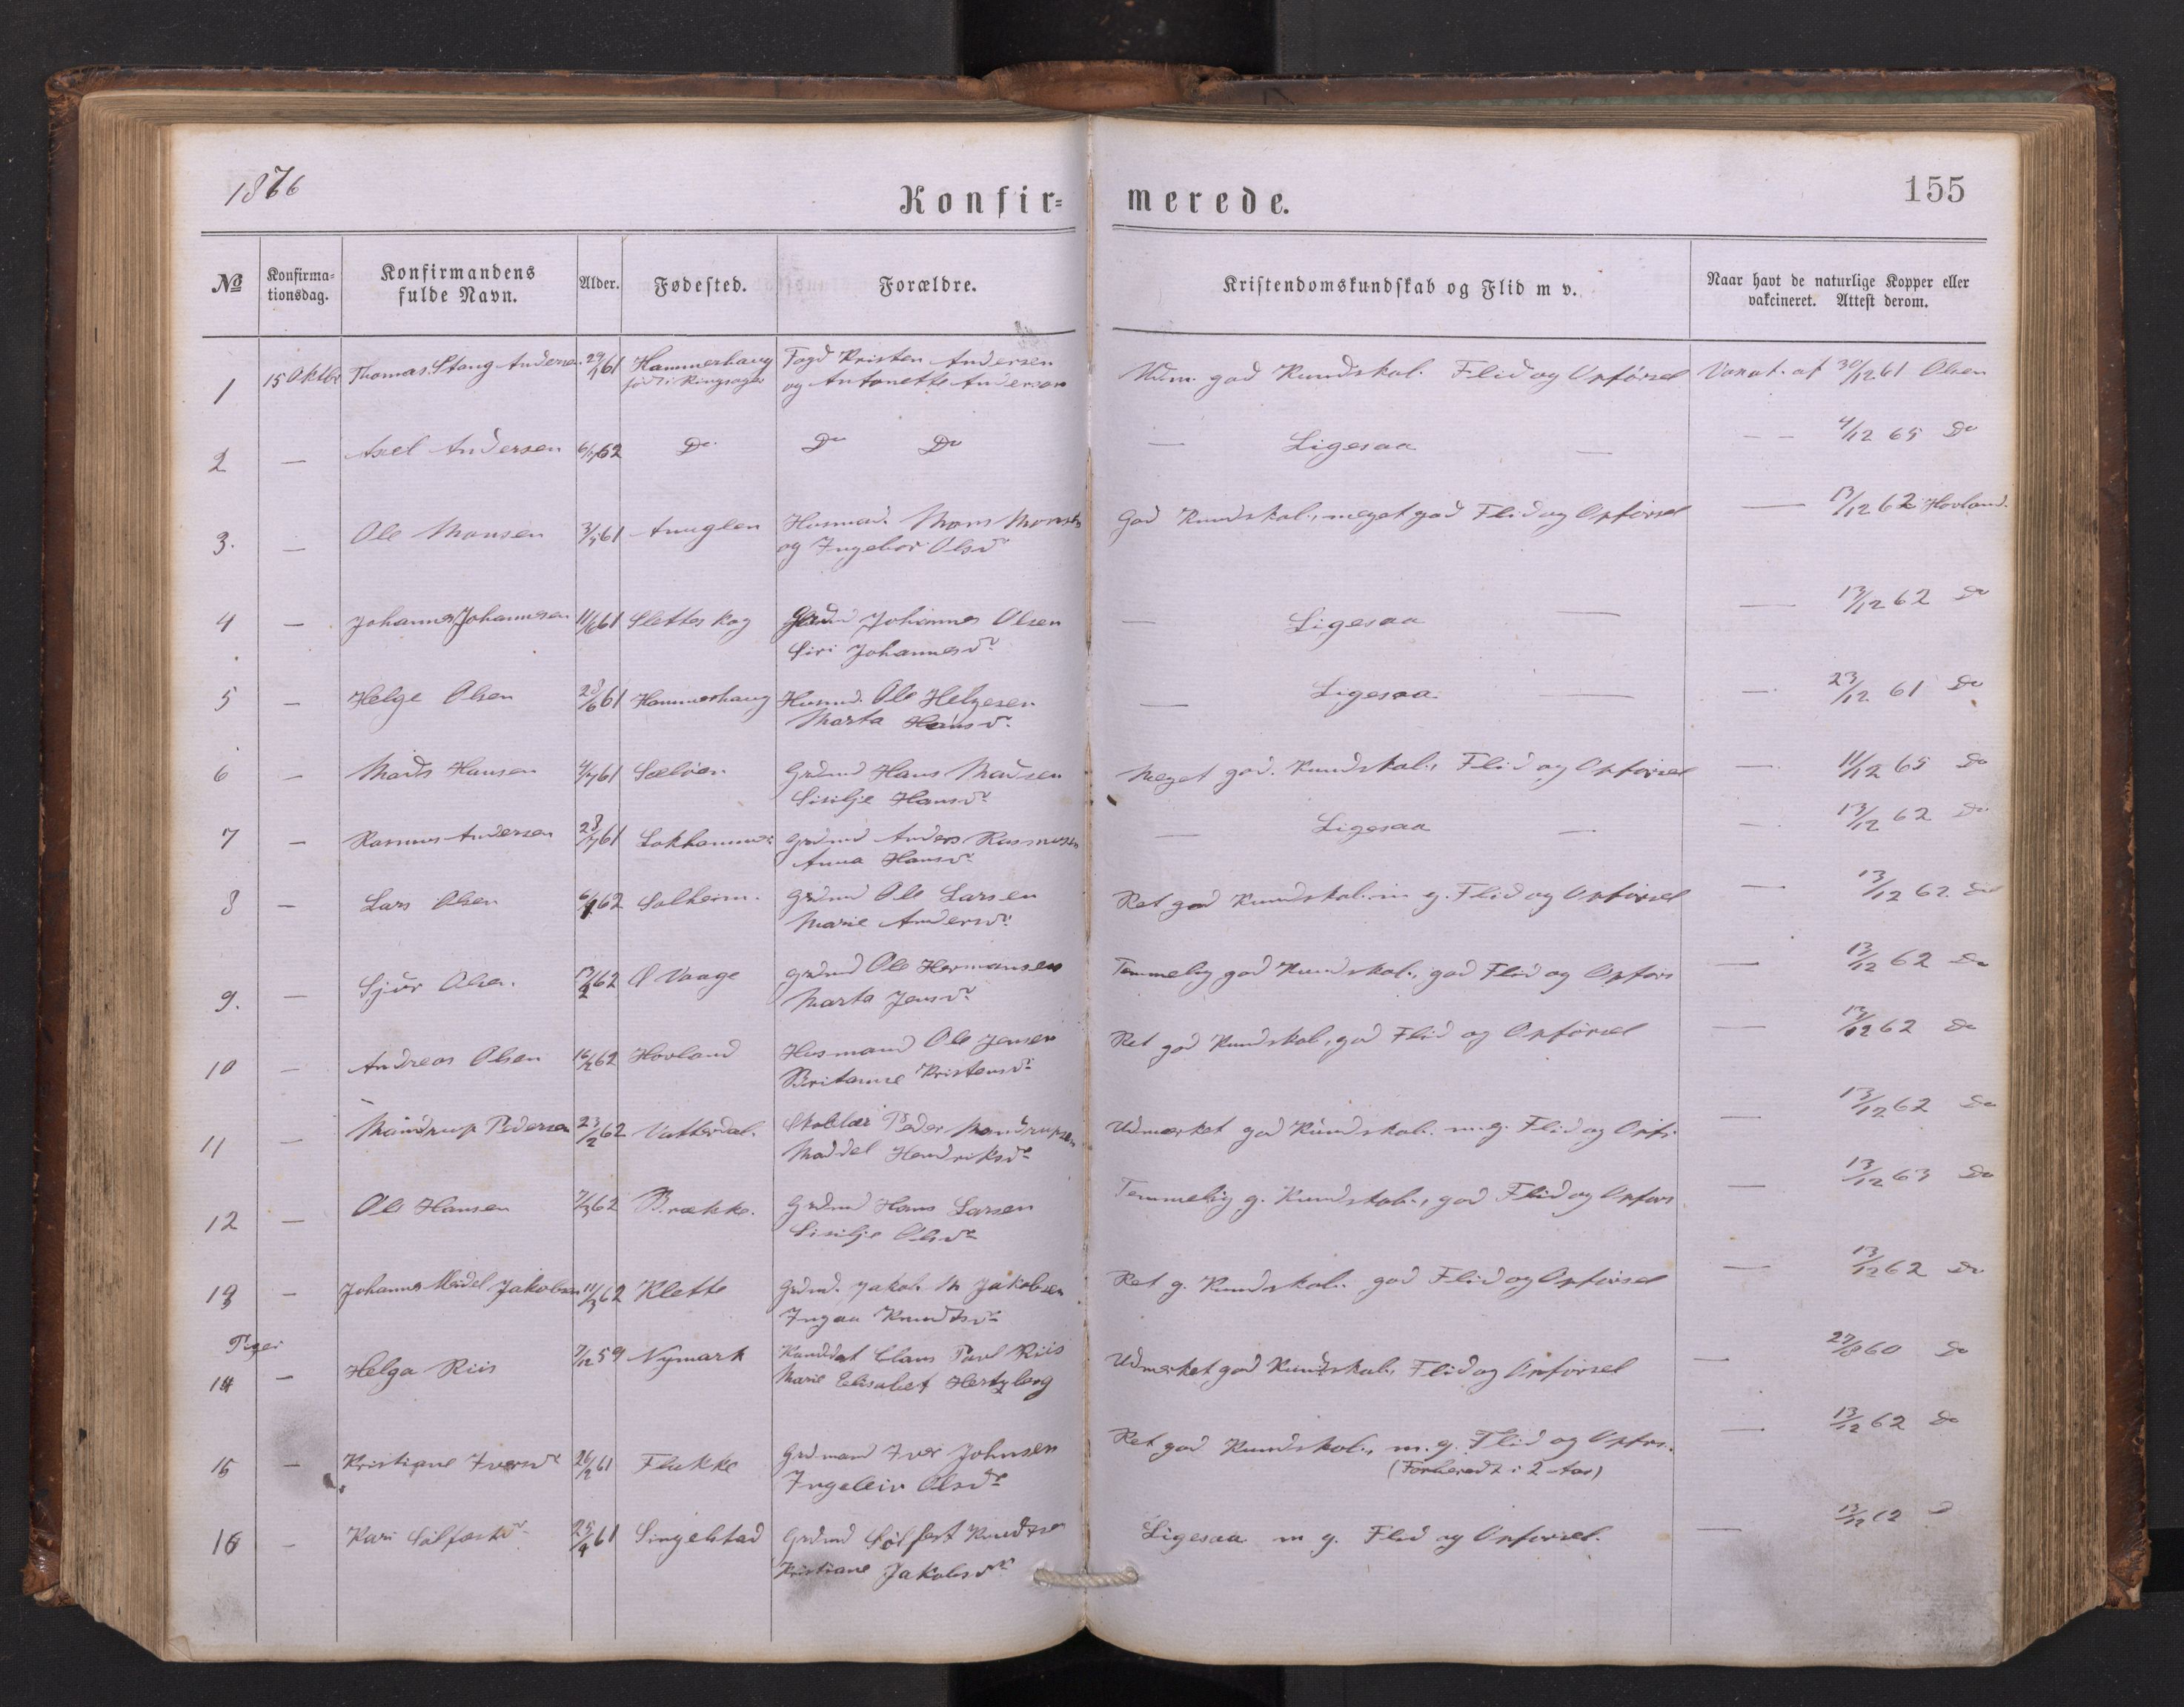 1876
Konfir-
merede.
155
No
Konfirma-
tionsdag.
Konfirmandens
fulde Navn.
Alder.
Fødested.
Forældre.
Kristendomskundskab og Flid m v.
Naar havt de naturlige Kopper eller
vakcineret. Attest derom.
1 15 Oktbr Thomas Stang Andersen 29/1 61 Hammerhaug Fogd Kristen Andersen Udm. god Kundskab. Flid og Opførsel Vaxat. af 30/12 61 Olsen
født i Ringsager og Antonette Andersen
2 — Axel Andersen 62 Do Do Do — Ligesaa — — — 4/12 65 Do
3. — Ole Monsen 61 Husmd. Mons Monsen God Kundskab., meget god Flid og Opførsel — 13/12 62 Hovland.
og Ingebor Olsdr
4 — Johannes Johannesen 61 Sletteskog Grdmd Johannes Olsen — Ligesaa — — 13/12 62 Do
Siri Johannesdr
5 — Helge Olsen 28/6 61 Hammerhaug Husmd. Ole Helgesen — Ligesaa — — 23/12 61 Do
Marta Hansdr
6 — Mads Hansen 61 Sæløen Grdmd Hans Madsen Meget god. Kundskab., Flid og Opførsel — 11/12 65 Do
Sisilje Hansdr
7 — Rasmus Andersen 61 Lokhammer Grdmd Anders Rasmusen — Ligesaa — — 13/12 62 Do
Anna Hansdr
8 — Lars Olsen 6/1 62 Solheim. Grdmd Ole Larsen Ret god Kundskab. m g. Flid og Opførsel — 13/12 62. Do
Marie Andersdr
9. — Sjur Olsen. 13/2 62 Ø Vaage Grdmd Ole Hermansen Temmelig god Kundskab., god Flid og Opførs — 13/12 62 Do
Marta Jensdr
10 — Andreas Olsen 16/2 62 Hovland Husmand Ole Jensen Ret god Kundskab, god Flid og Opførsel — 13/12 62 Do
Britanne Kristensdr
11 — Mandrup Pedersen 23/2 62 Vatterdal. Skolelær Peder Mandrupsen Udmærket god Kundskab. m.g. Flid og Opfr. — 13/12 62 Do
Maddel Hendriksdr
12 — Ole Hansen 7/3 62 Brække. Grdmd Hans Larsen Temmelig g. Kundskab., god Flid og Opførs — 13/12 63 Do
Sisilje Olsdr
13 — Johannes Meidel Jakobsen 11/3 62 Klette Grdmd. Jakob M Jakobsen Ret g. Kundskab. god Flid og Opførsel — 13/12 62 Do
Ingaa Knudtsdr
Piger
14 — Helga Riis 7/12 59 Nymark Kandidat Claus Pavel Riis Udmærket god Kundskab., Flid og Opførsel — 27/8 60 Do
Marie Elisabet Hertzberg
15 — Kristiane Iversdr 26/2 61 Flakke Grdmand Iver Johnsen Ret god Kundskab., m.g. Flid og Opførs. — 13/12 62 Do
Ingeleiv Olsdr (Forberedt i 2 Aar)
16 — Kari Sølfæstdr 25/4 61 Singelstad Grdmd Sølfest Knudtsen Ligesaa m g. Flid og Opførsel. — 13/12 62 D
Kristiane Jakobsdr